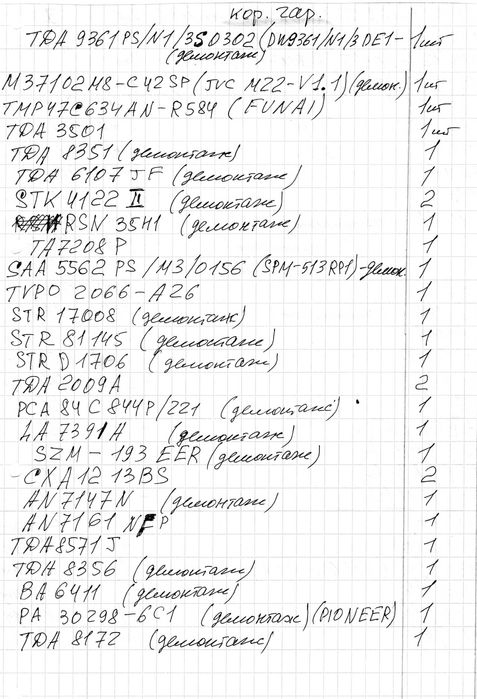 кор. гар.
TDA 9361PS/N1/3SD302 (DW9361/N1/3DE1- 1шт
(демонтаж)
M37102M8-C42SP (JVC M22-V1.1)(демон.) 1шт
TMP47C634AN-R584 (FUNAI) 1шт
TDA 3501 1шт
TDA 8351 (демонтаж) 1
TDA 6107 JF (демонтаж) 1
STK 4122 II (демонтаж) 2
RSN 35H1 (демонтаж) 1
TA7208P 1
SAA 5562 PS/M3/0156 (SPM-513RP1)-демон. 1
TVPO 2066-A26 1
STR 17008 (демонтаж) 1
STR 81145 (демонтаж) 1
STR D1706 (демонтаж) 1
TDA 2009A 2
PCA 84C844P/221 (демонтаж) 1
LA 7391A (демонтаж) 1
SZM-193 EER (демонтаж) 1
-CXA1213BS 2
AN7147N (демонтаж) 1
AN7161 NFP 1
TDA8571J 1
TDA 8356 (демонтаж) 1
BA 6411 (демонтаж) 1
PA 30298-6C1 (демонтаж)(PIONEER) 1
TDA 8172 (демонтаж) 1